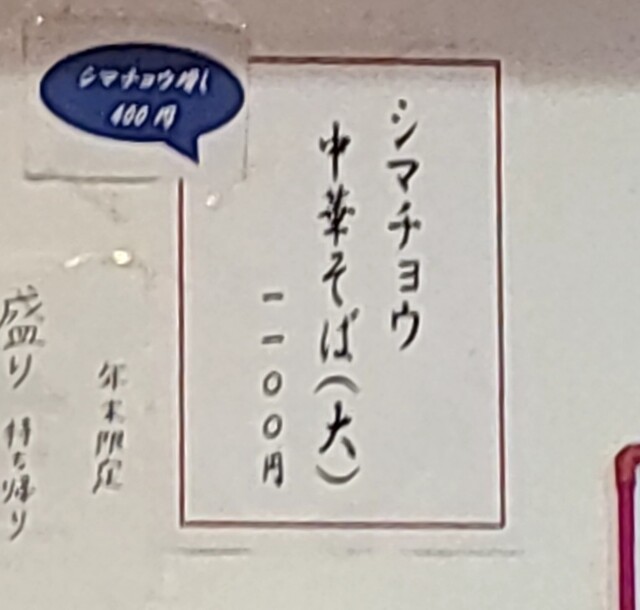 シマチョウ増し
400円
シマチョウ
中華そば(大)
一一〇〇円
年末限定
盛り 持ち帰り